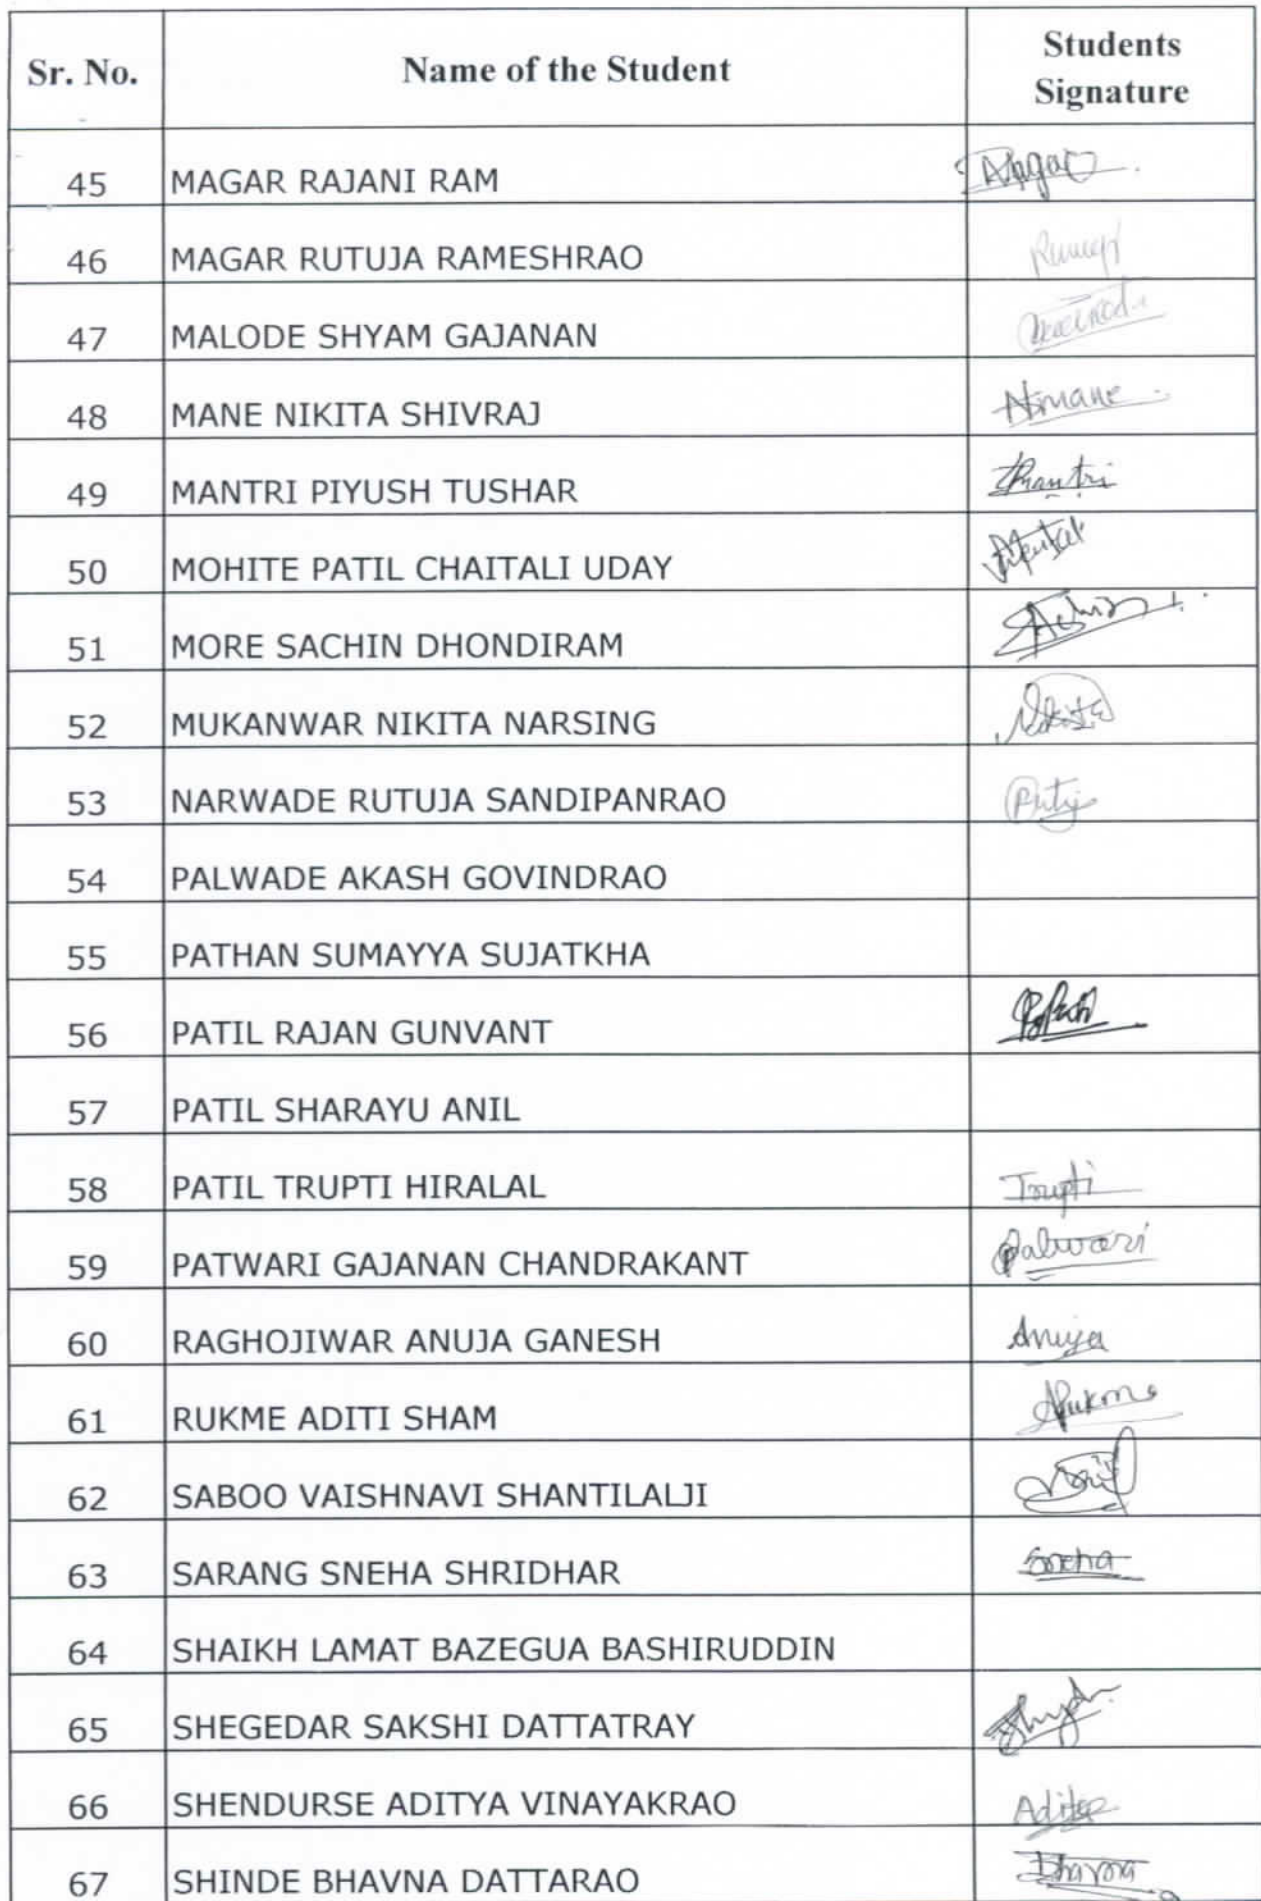 Sr. No. Name of the Student Students Signature
45 MAGAR RAJANI RAM Magar
46 MAGAR RUTUJA RAMESHRAO
47 MALODE SHYAM GAJANAN
48 MANE NIKITA SHIVRAJ Nmane
49 MANTRI PIYUSH TUSHAR Mantri
50 MOHITE PATIL CHAITALI UDAY
51 MORE SACHIN DHONDIRAM
52 MUKANWAR NIKITA NARSING Nikita
53 NARWADE RUTUJA SANDIPANRAO
54 PALWADE AKASH GOVINDRAO
55 PATHAN SUMAYYA SUJATKHA
56 PATIL RAJAN GUNVANT
57 PATIL SHARAYU ANIL
58 PATIL TRUPTI HIRALAL Trupti
59 PATWARI GAJANAN CHANDRAKANT Patwari
60 RAGHOJIWAR ANUJA GANESH Anuja
61 RUKME ADITI SHAM ARukme
62 SABOO VAISHNAVI SHANTILALJI
63 SARANG SNEHA SHRIDHAR Sneha
64 SHAIKH LAMAT BAZEGUA BASHIRUDDIN
65 SHEGEDAR SAKSHI DATTATRAY
66 SHENDURSE ADITYA VINAYAKRAO Aditya
67 SHINDE BHAVNA DATTARAO Bhavna